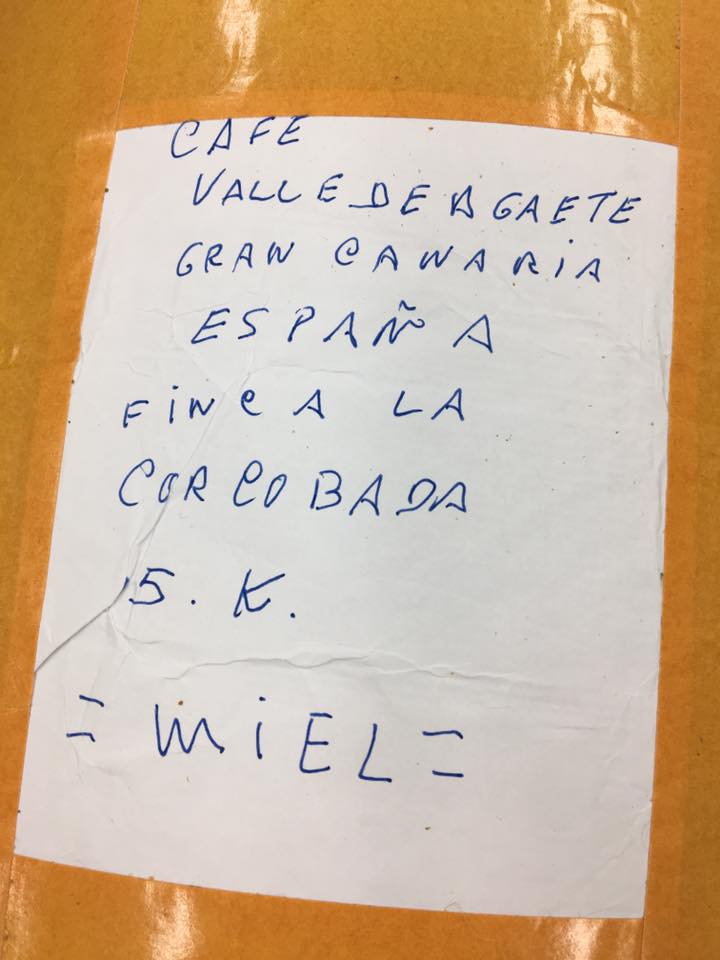 CAFE
VALLE DE AGAETE
GRAN CANARIA
ESPAÑA
FINCA LA
CORCOBADA
15. K.
= MIEL =